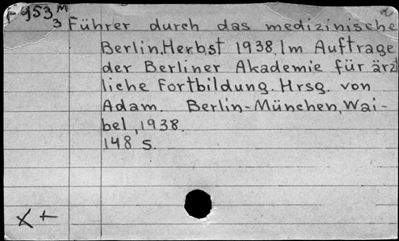 F 953 M
3 Führer durch das medizinische
Berlin, Herbst 1938. Im Auftrage
der Berliner Akademie für ärzt
liche Fortbildung. Hrsg. von
Adam. Berlin-München, Wai-
bel, 1938.
148 S.